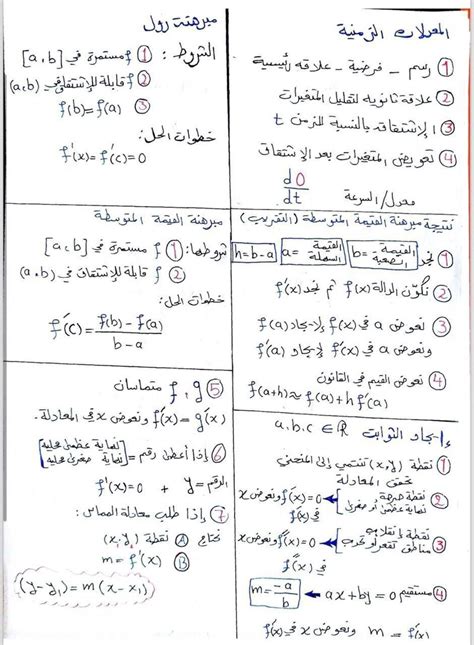 المعدلات الزمنية
① رسم - فرضية - علاقة رئيسية
② علاقة ثانوية لتقليل المتغيرات
③ الإشتقاق بالنسبة للزمن t
④ تعويض المتغيرات بعد الإشتقاق
معدل/السرعة d0/dt
مبرهنة رول
الشروط: ① f مستمرة في [a,b]
② f قابلة للإشتقاق في (a,b)
③ f(b)=f(a)
خطوات الحل:
f'(x)=f'(c)=0
نتيجة مبرهنة القيمة المتوسطة (التقريب)
① نجد b= القيمة الصعبة a= القيمة السهلة h=b-a
② نكوّن الدالة f(x) ثم نجد f'(x)
③ نعوض a في f(x) لإيجاد f(a)
ونعوض a في f'(x) لإيجاد f'(a)
④ نعوض القيم في القانون
f(a+h)≈f(a)+hf'(a)
مبرهنة القيمة المتوسطة
شروطها: ① f مستمرة في [a,b]
② f قابلة للإشتقاق في (a,b)
خطوات الحل:
f'(c)=f(b)-f(a)/b-a
إيجاد الثوابت a.b.c∈ℝ
① نقطة (x,y) تنتمي إلى المنحني
تحقق المعادلة
② نقطة حرجة
نهاية عظمى أو صغرى
f'(x)=0 ونعوض x
في f'(x)
③ نقطة إنقلاب
مناطق تقعر أو تحدب
f''(x)=0 ونعوض x
في f''(x)
④ مستقيم ax+by=0 m=-a/b
m=f'(x) ونعوض x في f'(x)
⑤ f,g متماسان
f'(x)=g'(x) ونعوض x في المعادلة.
⑥ إذا أعطى رقم = [نهاية عظمى محلية
نهاية صغرى محلية]
الرقم = y + f'(x)=0
⑦ إذا طلب معادلة المماس:
نحتاج Ⓐ نقطة (x₁,y₁)
Ⓑ m=f'(x)
(y-y₁)=m(x-x₁)